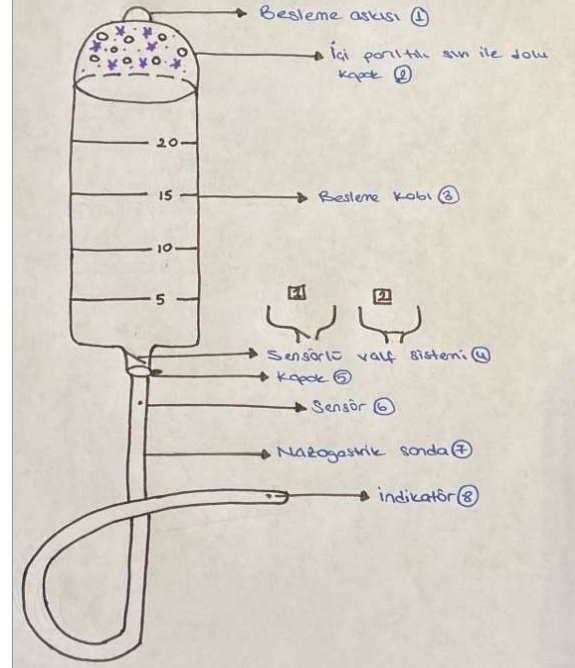 Besleme askısı ①
İçi parıltılı sıvı ile dolu
kapak ②
20
15
Besleme kabı ③
10
1 2
5
Sensörlü valf sistemi ④
Kapak ⑤
Sensör ⑥
Nazogastrik sonda ⑦
İndikatör ⑧